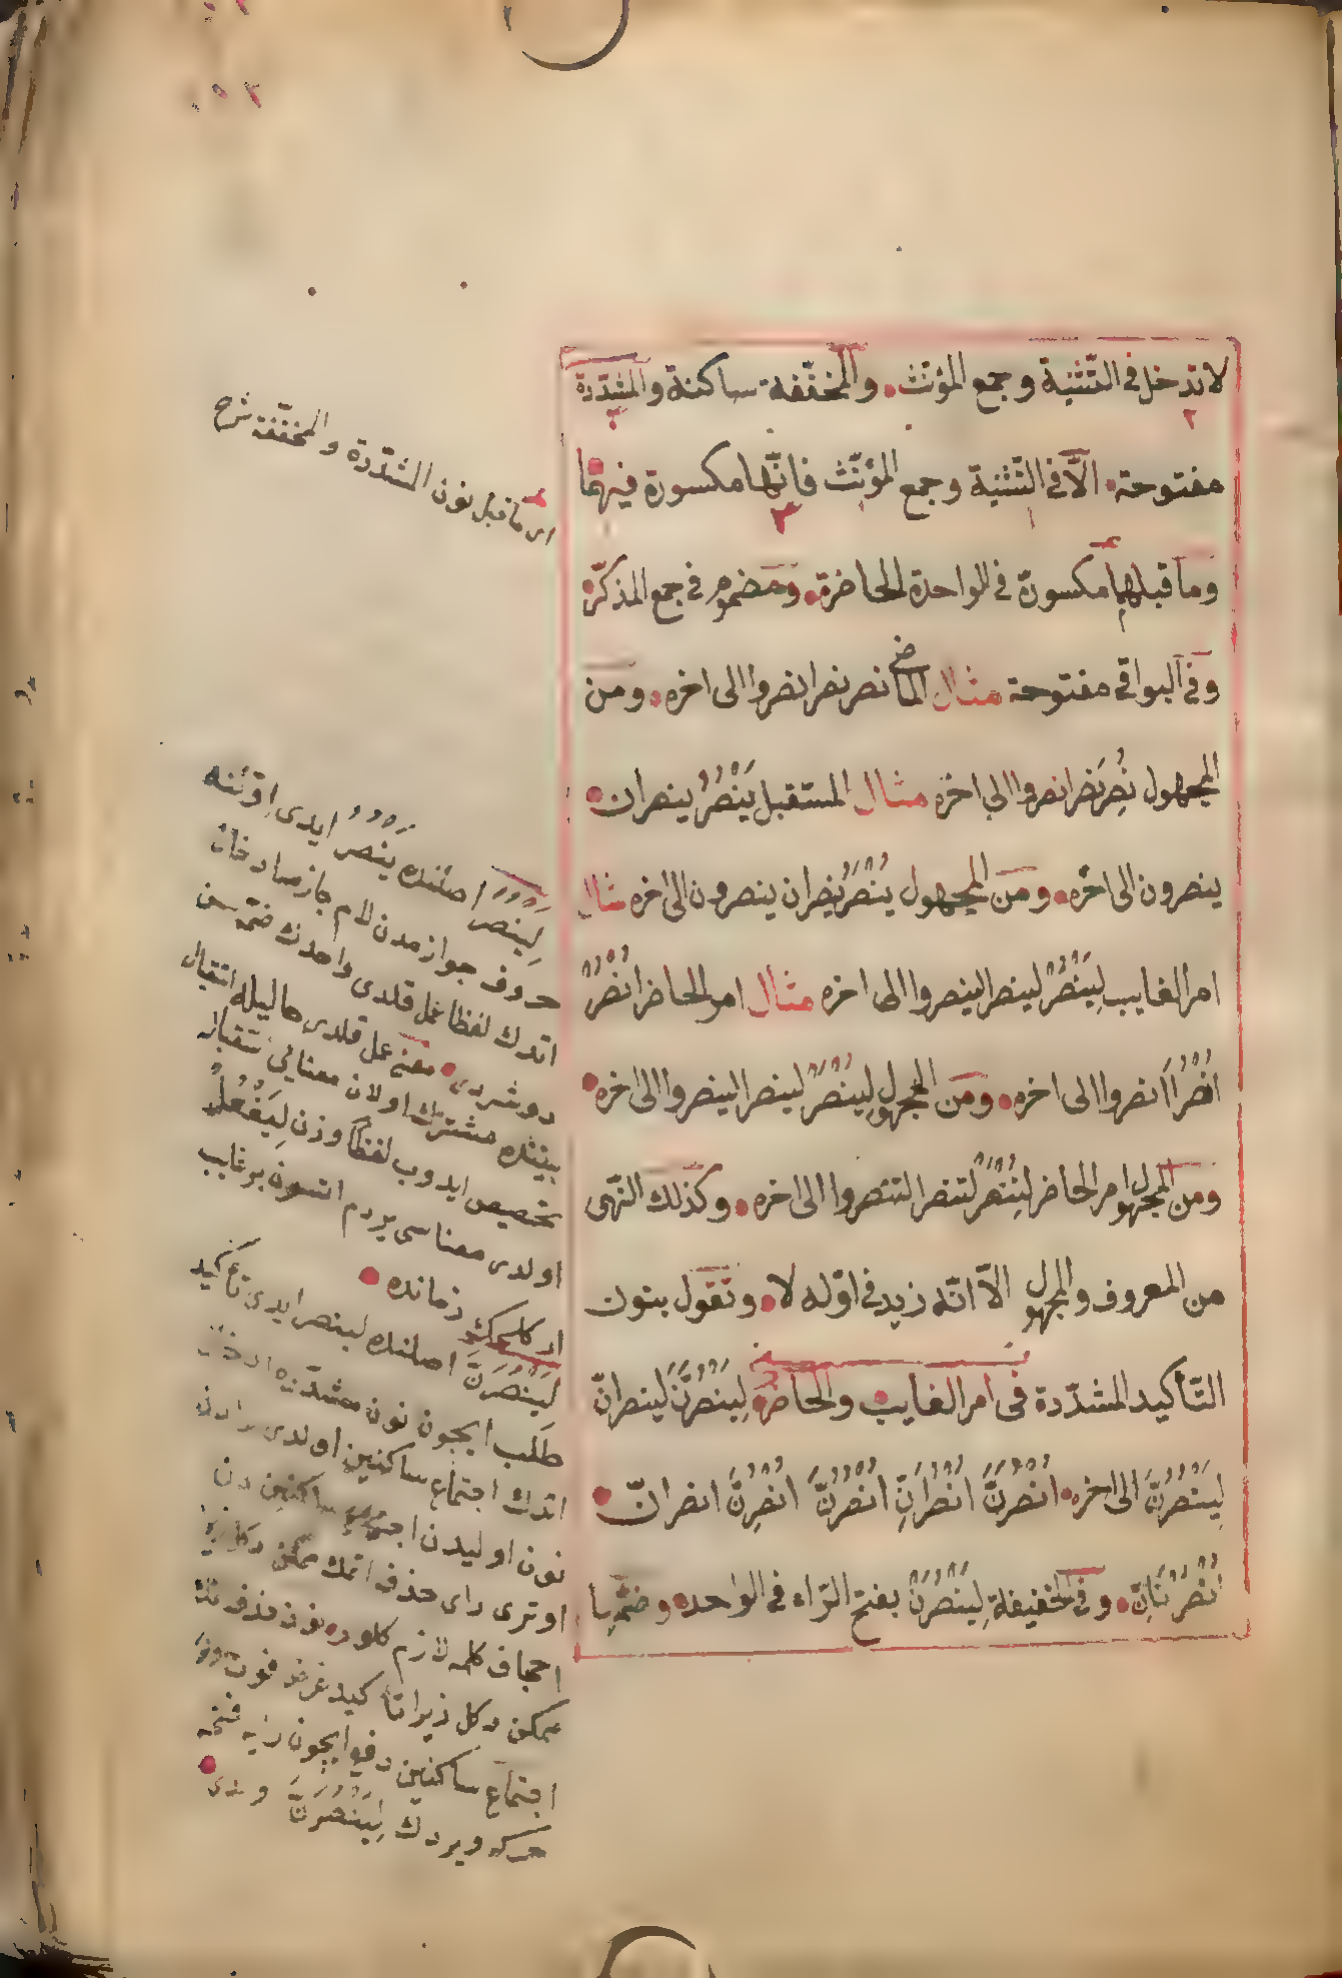 لا تدخل في التّثنية وجمع المؤنّث والمخفّفة ساكنة والمشدّدة
مفتوحة الّا في التّثنية وجمع المؤنّث فانّها مكسورة فيهما
وما قبلهما مكسورة في الواحدة الحاضرة ومضموم في جمع المذكّر
وفي البواقي مفتوحة مثال الماضى نصر نصرا نصروا الى اخره ومن
المجهول نُصِرَ نصرا نصروا الى اخره مثال المستقبل يَنْصُرُ ينصران
ينصرون الى اخره ومن المجهول يُنْصَرُ ينصران ينصرون الى اخره مثال
امر الغايب لِيَنْصُرْ لينصرا لينصروا الى اخره مثال امر الحاضر اُنْصُرْ
اُنْصُرَا انصروا الى اخره ومن المجهول لِيُنْصَرْ لينصرا لينصروا الى اخره
ومن المجهول امر الحاضر لِتُنْصَرْ لتنصرا لتنصروا الى اخره وكذلك النّهى
من المعروف والمجهول الّا انّه زيد في اوّله لا وتقول بنون
التّأكيد المشدّدة فى امر الغايب والحاضر لِيَنْصُرَنَّ لينصرانّ
لِيَنْصُرُنَّ الى اخره اُنْصُرَنَّ اُنْصُرَانِّ اُنْصُرُنَّ اُنْصُرِنَّ انصرانّ
اُنْصُرْنَانِّ وفي الخفيفة لِيَنْصُرَنْ بفتح الرّاء في الواحد وضمّها
اى ما قبل نون المشدّدة والمخفّفة شرح
لِيَنْصُرْ اصلنده يَنْصُرُ ايدى
حروف جوازمدن لام جازمه ادخال
اتدك لفظا عمل قلدى واحدك ضمّه سن
دوشردى معنى عمل قلدى حاليله استقبال
بيننده مشترك اولان معنايى استقباله
تخصيص ايدوب لفظا وزن لِيَفْعُلْ
اولدى معناسى يردم اتسون بر غايب
ار كلجك زمانده
لِيَنْصُرَنَّ اصلنده لينصر ايدى تأكيد
طلب ايچون نون مشدّده ادخال
اتدك اجتماع ساكنين اولدى را دن
نون اوليدن ساكنين دن
اوترى راى حذف اتمك ممكن دكل
اجحاف كلمه لازم كلور نون حذف
ممكن دكل زيرا تأكيد غرض فوت
اجتماع ساكنين دفع ايچون رايه فتحه
حركه ويردك لِيَنْصُرَنَّ